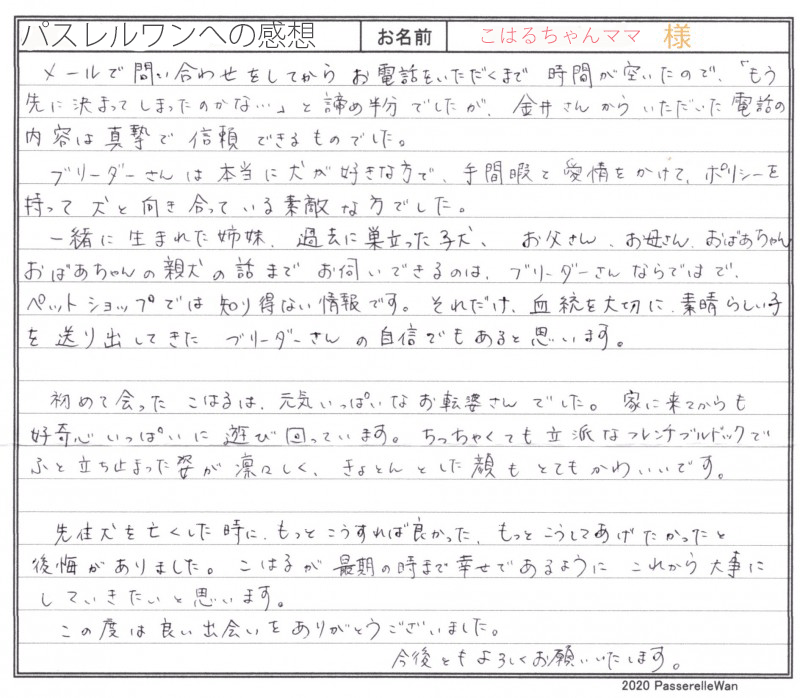 パスレルワンへの感想 お名前 こはるちゃんママ 様
メールで問い合わせをしてから お電話をいただくまで 時間が空いたので、「もう
先に決まってしまったのかな…」と諦め半分でしたが、金井さんから いただいた電話の
内容は真摯で 信頼できるものでした。
ブリーダーさんは本当に犬が好きな方で、手間暇と愛情をかけて、ポリシーを
持って犬と向き合っている素敵な方でした。
一緒に生まれた姉妹、過去に巣立った子犬、お父さん、お母さん、おばあちゃん
おばあちゃんの親犬の話まで お伺いできるのは、ブリーダーさんならではで、
ペットショップでは知り得ない情報です。それだけ、血統を大切に、素晴らしい子
を送り出してきた ブリーダーさんの自信でもあると思います。
初めて会った こはるは、元気いっぱいなお転婆さんでした。家に来てからも
好奇心いっぱいに遊び回っています。ちっちゃくても立派なフレンチブルドックで
ふと立ち止まった姿が凛々しく、きょとんとした顔もとてもかわいいです。
先住犬を亡くした時に、もっとこうすれば良かった、もっとこうしてあげたかったと
後悔がありました。こはるが最期の時まで幸せであるように これから大事に
していきたいと思います。
この度は良い出会いをありがとうございました。
今後ともよろしくお願いいたします。
2020 PasserelleWan